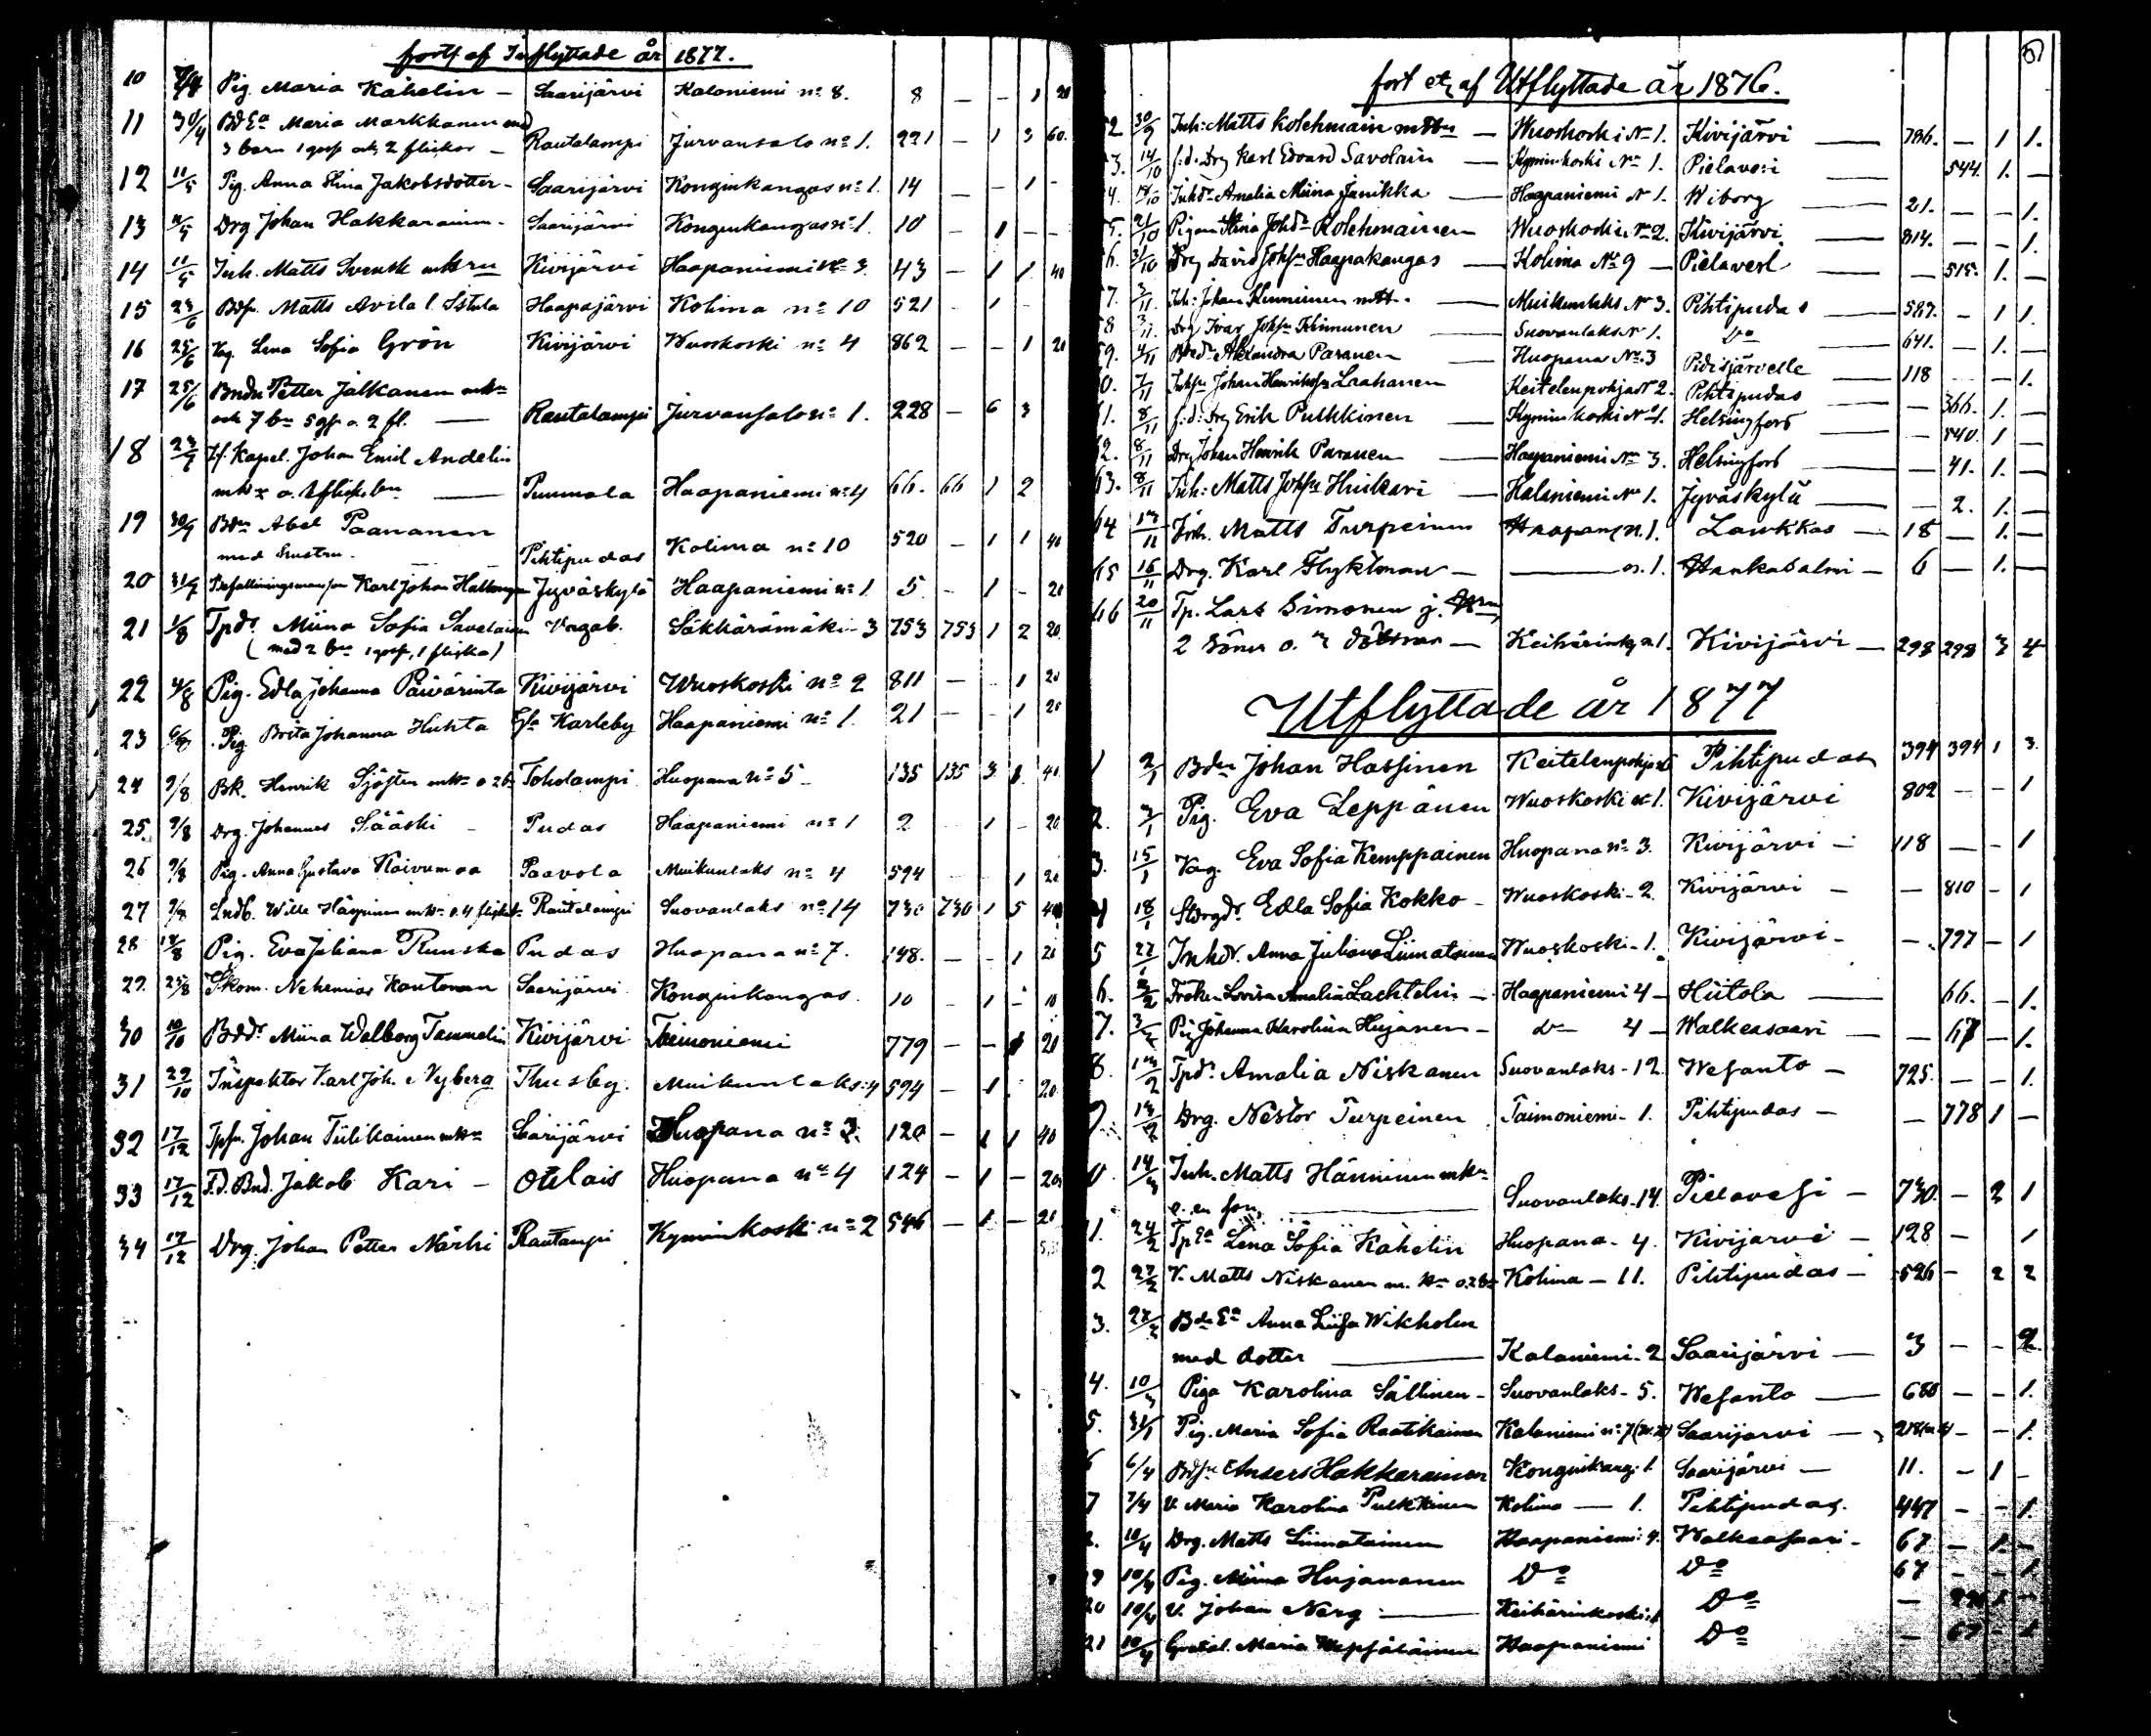 forts af Inflyttade år 1877.
10 Pig. Maria Kähelin – Saarijärvi Kalaniemi no 8. 8 – – 1 20
11 30/4 Bd Ea Maria Markkanen med
3 barn 1 goss och 2 flickor – Rautalampi Jurvansalo no 1. 221 – 1 3 60.
12 11/5 Pig. Anna Stina Jakobsdotter – Saarijärvi Konginkangas no 1. 14 – – 1 –
13 11/5 Drg Johan Hakkarainen – Saarijärvi Konginkangas no 1. 10 – 1 – –
14 11/5 Inh. Matts Svensk m hru Kivijärvi Haapaniemi No 3. 43 – 1 1 40
15 23/6 Bdsn. Matts Avila l. Sstula Haapajärvi Kolima no 10 521 – 1 –
16 25/6 Vag. Lena Sofia Grön Kivijärvi Wuoskoski no 4 862 – – 1 20
17 25/6 Bndn Petter Jälkanen m hu
och 7 bn 5 gp o. 2 fl. — Rautalampi Jurvansalo no 1. 228 – 6 3
18 23/7 Kapel. Johan Emil Andelin
— Puumala Haapaniemi no 4 66. 66 1 2
19 30/7 Bdn Abel Paananen
med hustru. Pihtipudas Kolima no 10 520 – 1 1 40
20 31/7 Befallningsman Karl Johan Jyväskylä Haapaniemi no 1. 5. – 1 – 20
21 1/8 Tpdr. Miina Sofia Savolainen Vagab. Säkkärämäki – 3 753 753 1 2 20.
(med 2 bn 1 gosse, 1 flicka)
22 4/8 Pig. Edla Johanna Päivärinta Kivijärvi Wuoskoski no 2 811 – 1 20
23 Pig Brita Johanna Huhta Gla Karleby Haapaniemi no 1. 21 – 1 20
24 9/8 Bk. Henrik Sjösten m hu o 2 bn Toholampi Huopana no 5 – 135 135 3 40
25. 9/8 Drg. Johannes Sääski – Pudas Haapaniemi no 1 2 1 – 20.
26 9/8 Pig. Anna Gustava Koivumaa Paavola Muikunlaks no 4 594 1 20
27 9/8 Lndb. Wille Häyrinen m hu o. 4 flick Rautalampi Suovanlaks no 14 730 730 1 5 40
28 14/8 Pig. Eva Johana Ruuska Pudas Huopana no 7. 148. – – 1 20
29. 25/8 Skom. Nehemias Kautonen Saarijärvi Konginkangas. 10 – 1 – 10
30 10/10 Bddr Miina Walborg Tammelin Kivijärvi Taimoniemi 779 – – 1 20
31 29/10 Inspektor Karl Joh. Nyberg Thusby. Muikunlaks: 4 594 – 1 20.
32 17/12 Tpsn. Johan Tiilikainen m hu Saarijärvi Huopana no 3. 120 – 1 1 40
33 17/12 F.d. Bnd. Jakob Kari – Otelais Huopana no 4 124 – 1 – 20
34 17/12 Drg. Johan Petter Närhi Rautampi Kyminkoski no 2 546 – 1 – 20
fort etz af Utflyttade år 1876.
52 30/9 Inh: Matts Kolehmain m hu — Wuoskoski No 1. Kivijärvi — 786. – 1 1.
3. 14/10 f:d: Drg Karl Edvard Savolain — Kyminkoski No 1. Pielavesi 544. 1. –
4. 18/10 Inhdr Amalia Miina Janikka — Haapaniemi No 1. Wiborg — 21. – – 1.
5. 21/10 Pigan Stina Johdr Kolehmainen Wuoskoski No 2. Kivijärvi — 814. – – 1.
6. 31/10 Drg David Johsn Haapakangas — Kolima No 9 – Pielavesi — – 515. 1. –
7. 3/11. Inh: Johan Kinnunen m hu. — Muikunlaks No 3. Pihtipudas — 587. – 1 1.
8 3/11. Drg Ivar Johsn Kinnunen — Suovanlaks No 1. Do — 641. – 1. –
9. 4/11 Alexandra Paranen — Huopana No 3 Pidisjärvelle — 118 – – 1.
0. 7/11 Inhsn Johan Henriksson Laahanen Keitelenpohja No 2. Pihtipudas — – 366. 1. –
1. 8/11 f:d: Drg Erik Pulkkinen — Kyminkoski No 1. Helsingfors — – 540. 1 –
2. 8/11 Drg Johan Henrik Paranen — Haapaniemi No 3. Helsingfors — – 41. 1. –
63. 8/11 Inh: Matts Johsn Huikari — Kalaniemi No 1. Jyväskylä — – 2. 1. –
64 13/11 Inh. Matts Turpeinen Haapan n. 1. Laukkas — 18 – 1. –
65 16/11 Drg. Karl Flyktman — n. 1. Hankasalmi – 6 – 1. –
66 20/11 Tp. Lars Simonen j. Hru
2 söner o. 3 döttrar – Keihärinkq n. 1. Kivijärvi – 298 298 3 4
Utflyttade år 1877
1 2/1 Bdn Johan Hassinen Keitelenpohja Pihtipudas 394 394 1 3.
2. 3/1 Pig. Eva Leppänen Wuoskoski n 1. Kivijärvi 802 – – 1
3. 15/1 Vag. Eva Sofia Kemppainen Huopana no 3. Kivijärvi – 118 – – 1
4 18/1 Stdrgdr. Edla Sofia Kokko – Wuoskoski – 2. Kivijärvi – – 810 – 1
5 22/1 Inhdr. Anna Juliana Liimatainen Wuoskoski – 1. Kivijärvi – – 797 – 1
6. 2/2 Fröken Lovisa Amalia Lachtelin – Haapaniemi 4 – Hiitola — 66. – 1.
7. 3/2 Pig Johanna Karolina Hujanen – do 4 – Walkeasaari — – 67 – 1.
8. 13/2 Tpdr. Amalia Niskanen Suovanlaks – 12. Wesanto – 725. – – 1.
9. 13/2 Drg. Nestor Turpeinen Taimoniemi – 1. Pihtipudas – – 778 1 –
0. Inh. Matts Hänninen m hu
o. en son, — Suovanlaks. 14. Pielavesi – 730. – 2 1
1. 24/2 Tp Ea Lena Sofia Kähelin Huopana – 4. Kivijärvi – 128 – 1
2 27/2 V. Matts Niskanen m. Hu o. 2 bn Kolima – 11. Pihtipudas – 526 – 2 2
3. 27/2 Bd Ea Anna Liisa Wikholm
med dotter — Kalaniemi – 2 Saarijärvi — 3 – – 2.
4. 10/3 Piga Karolina Sällinen – Suovanlaks – 5. Wesanto — 680 – – 1.
5. Pig. Maria Sofia Raatikainen Kalaniemi no 7 Saarijärvi — – – 1.
6 6/4 Bdsn Anders Hakkarainen Konginkang. 1. Saarijärvi — 11. – 1 –
7 7/4 V. Maria Karolina Pulkkinen Kolima — 1. Pihtipudas. 447 – – 1.
8. 10/4 Drg. Matts Liimatainen Haapaniemi: 4. Walkeasaari – 67 – 1. –
9 10/4 Pig. Miina Hujananen Do Do 67 – – 1.
20 10/4 V. Johan Nerg — Keihärinkoski: 1 Do –
21 10/4 Maria Haapaniemi Do – 67 – 1